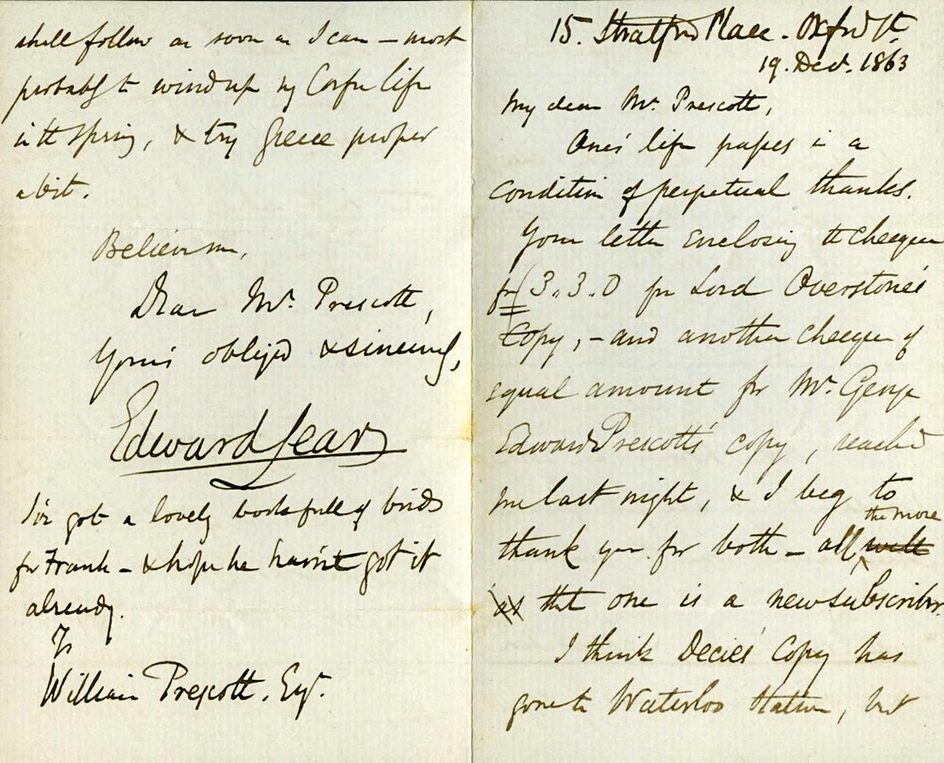 15. Stratford Place. Oxford St.
19. Decr. 1863
My dear Mr. Prescott,
One's life passes in a
condition of perpetual thanks.
Your letter enclosing the cheque
for £3.3.0 for Lord Overstone's
Copy, - and another cheque of
equal amount for Mr. George
Edward Prescott's copy, reached
me last night, & I beg to
thank you for both - all the more
that one is a new subscriber.
I think Decies' Copy has
gone to Waterloo Station, but
shall follow as soon as I can - most
probably to wind up my Corfu life
in the spring, & try Greece proper
a bit.
Believe me,
Dear Mr. Prescott,
Yours obliged & sincerely,
Edward Lear
I've got a lovely book full of birds
for Frank - & hope he hasn't got it
already.
To
William Prescott. Esqr.